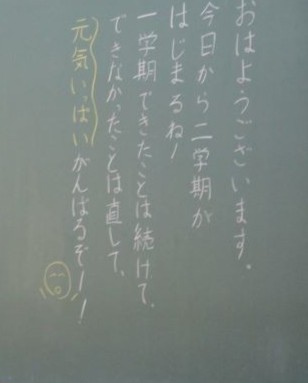 おはようございます。
今日から二学期が
はじまるね!
一学期できたことは続けて、
できなかったことは直して、
元気いっぱいがんばるぞー!!